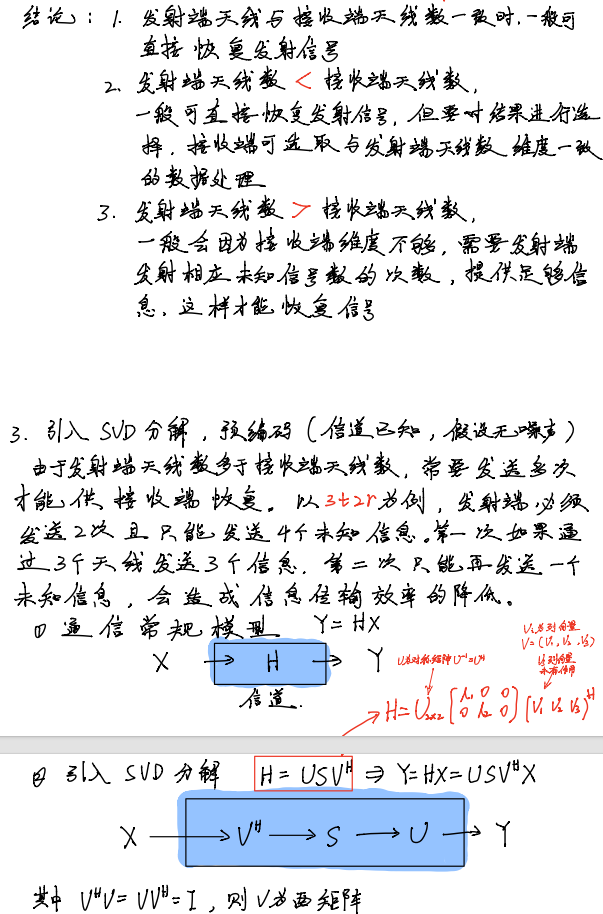 结论：1. 发射端天线与接收端天线数一致时，一般可
直接恢复发射信号
2. 发射端天线数 < 接收端天线数，
一般可直接恢复发射信号，但要对结果进行选
择，接收端可选取与发射端天线数维度一致
的数据处理
3. 发射端天线数 > 接收端天线数，
一般会因为接收端维度不够，需要发射端
发射相应未知信号数的次数，提供足够信
息，这样才能恢复信号
3. 引入 SVD 分解，预编码（信道已知，假设无噪声）
由于发射端天线数多于接收端天线数，常要发送多次
才能供接收端恢复。以3t2r为例，发射端必须
发送2次且只能发送4个未知信息。第一次如果通
过3个天线发送3个信息，第二次只能再发送一个
未知信息，会造成信息传输效率的降低。
① 通信常规模型 Y=HX
X → H → Y
信道.
V=(V₁, V₂, V₃)
H=U₂ₓ₂ [λ₁ 0 0
0 λ₂ 0] [V₁ V₂ V₃]ᴴ
② 引入 SVD 分解 H = USVᴴ ⇒ Y=HX=USVᴴX
X → Vᴴ → S → U → Y
其中 VᴴV=VVᴴ=I，则V为酉矩阵